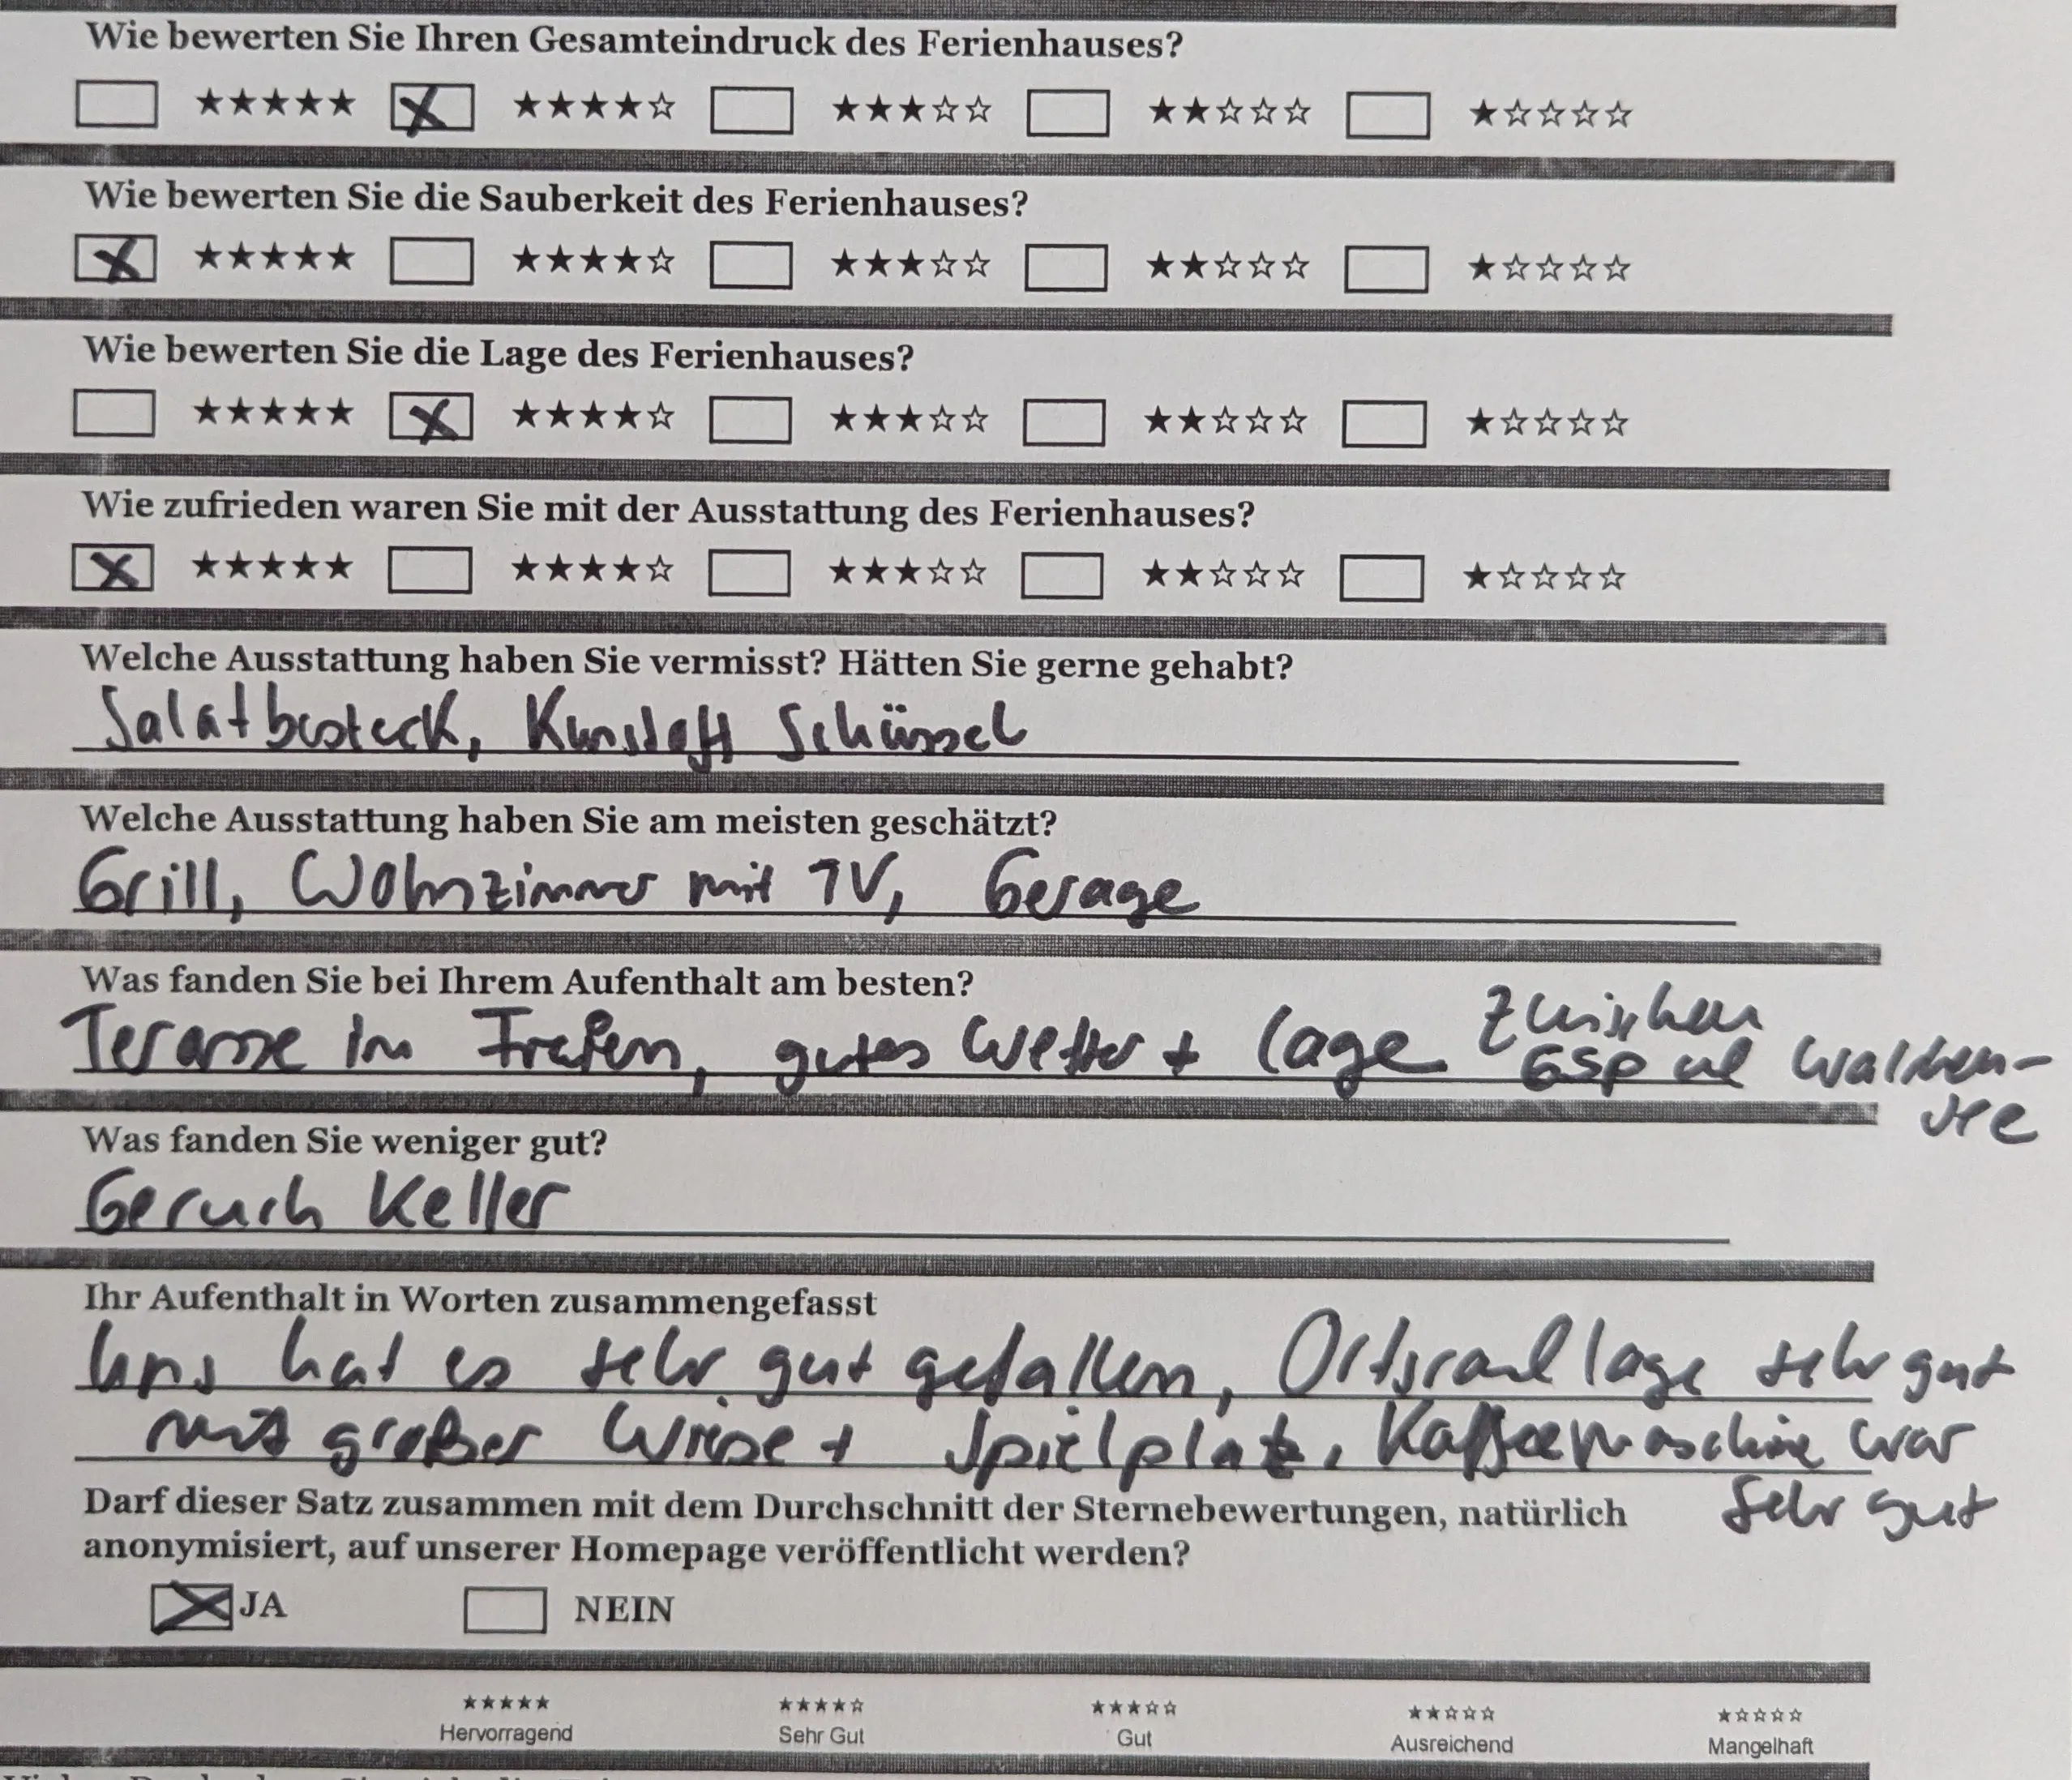 Wie bewerten Sie Ihren Gesamteindruck des Ferienhauses?
☐ ★★★★★ ☒ ★★★★☆ ☐ ★★★☆☆ ☐ ★★☆☆☆ ☐ ★☆☆☆☆
Wie bewerten Sie die Sauberkeit des Ferienhauses?
☒ ★★★★★ ☐ ★★★★☆ ☐ ★★★☆☆ ☐ ★★☆☆☆ ☐ ★☆☆☆☆
Wie bewerten Sie die Lage des Ferienhauses?
☐ ★★★★★ ☒ ★★★★☆ ☐ ★★★☆☆ ☐ ★★☆☆☆ ☐ ★☆☆☆☆
Wie zufrieden waren Sie mit der Ausstattung des Ferienhauses?
☒ ★★★★★ ☐ ★★★★☆ ☐ ★★★☆☆ ☐ ★★☆☆☆ ☐ ★☆☆☆☆
Welche Ausstattung haben Sie vermisst? Hätten Sie gerne gehabt?
Salatbesteck, Schüssel
Welche Ausstattung haben Sie am meisten geschätzt?
Grill, Wohnzimmer mit TV, Gerage
Was fanden Sie bei Ihrem Aufenthalt am besten?
Terasse im gutes Wetter + Lage zwischen
GAP Walchen-
see
Was fanden Sie weniger gut?
Geruch Keller
Ihr Aufenthalt in Worten zusammengefasst
Uns hat es sehr gut gefallen, Ortsrand lage sehr gut
mit großer Wiese + Spielplatz, Kaffeemaschine war
sehr gut
Darf dieser Satz zusammen mit dem Durchschnitt der Sternebewertungen, natürlich
anonymisiert, auf unserer Homepage veröffentlicht werden?
☒ JA ☐ NEIN
★★★★★ ★★★★☆ ★★★☆☆ ★★☆☆☆ ★☆☆☆☆
Hervorragend Sehr Gut Gut Ausreichend Mangelhaft